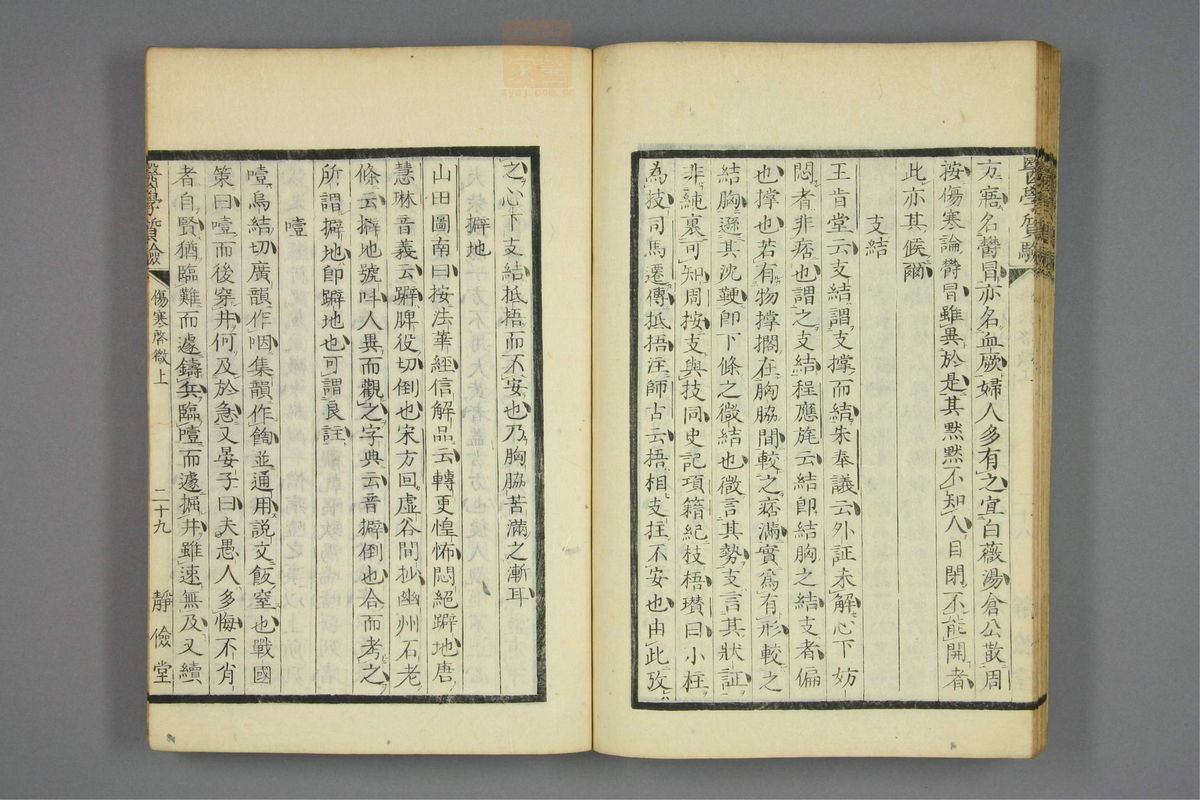 方寤名鬱冒亦名血厥婦人多有之宜白薇湯倉公散周
按傷寒論鬱冒雖異於是其黙黙不知人目閉不能開者
此亦其候爾
支結
王肯堂云支結謂支撑而結朱奉議云外証未解心下妨
悶者非痞也謂之支結程應旄云結卽結胸之結支者偏
也撑也若有物撑擱在胸脇間較之痞滿實爲有形較之
結胸遜其沈鞕卽下條之微結也微言其勢支言其狀証
非純裏可知周按支與技同史記項籍紀枝梧瓚曰小柱
為技司馬遷傳抵捂注師古云捂相支拄不安也由此攷
之心下支結抵捂而不安也乃胸脇苦滿之漸耳
擗地
山田圖南曰按法華經信解品云轉更惶怖悶絕躃地唐
慧琳音義云躃脾役切倒也宋方回虛谷間抄幽州石老
條云擗地號叫人異而觀之字典云音擗倒也合而考之
所謂擗地卽躃地也可謂良註
噎
噎烏結切廣韻作咽集韻作䬵並通用說文飯窒也戰國
策曰噎而後穿井何及於急又晏子曰夫愚人多悔不肖
者自賢猶臨難而遽鑄兵臨噎而遽掘井雖速無及又續
醫學質驗
傷寒啓微上
二十九
靜儉堂